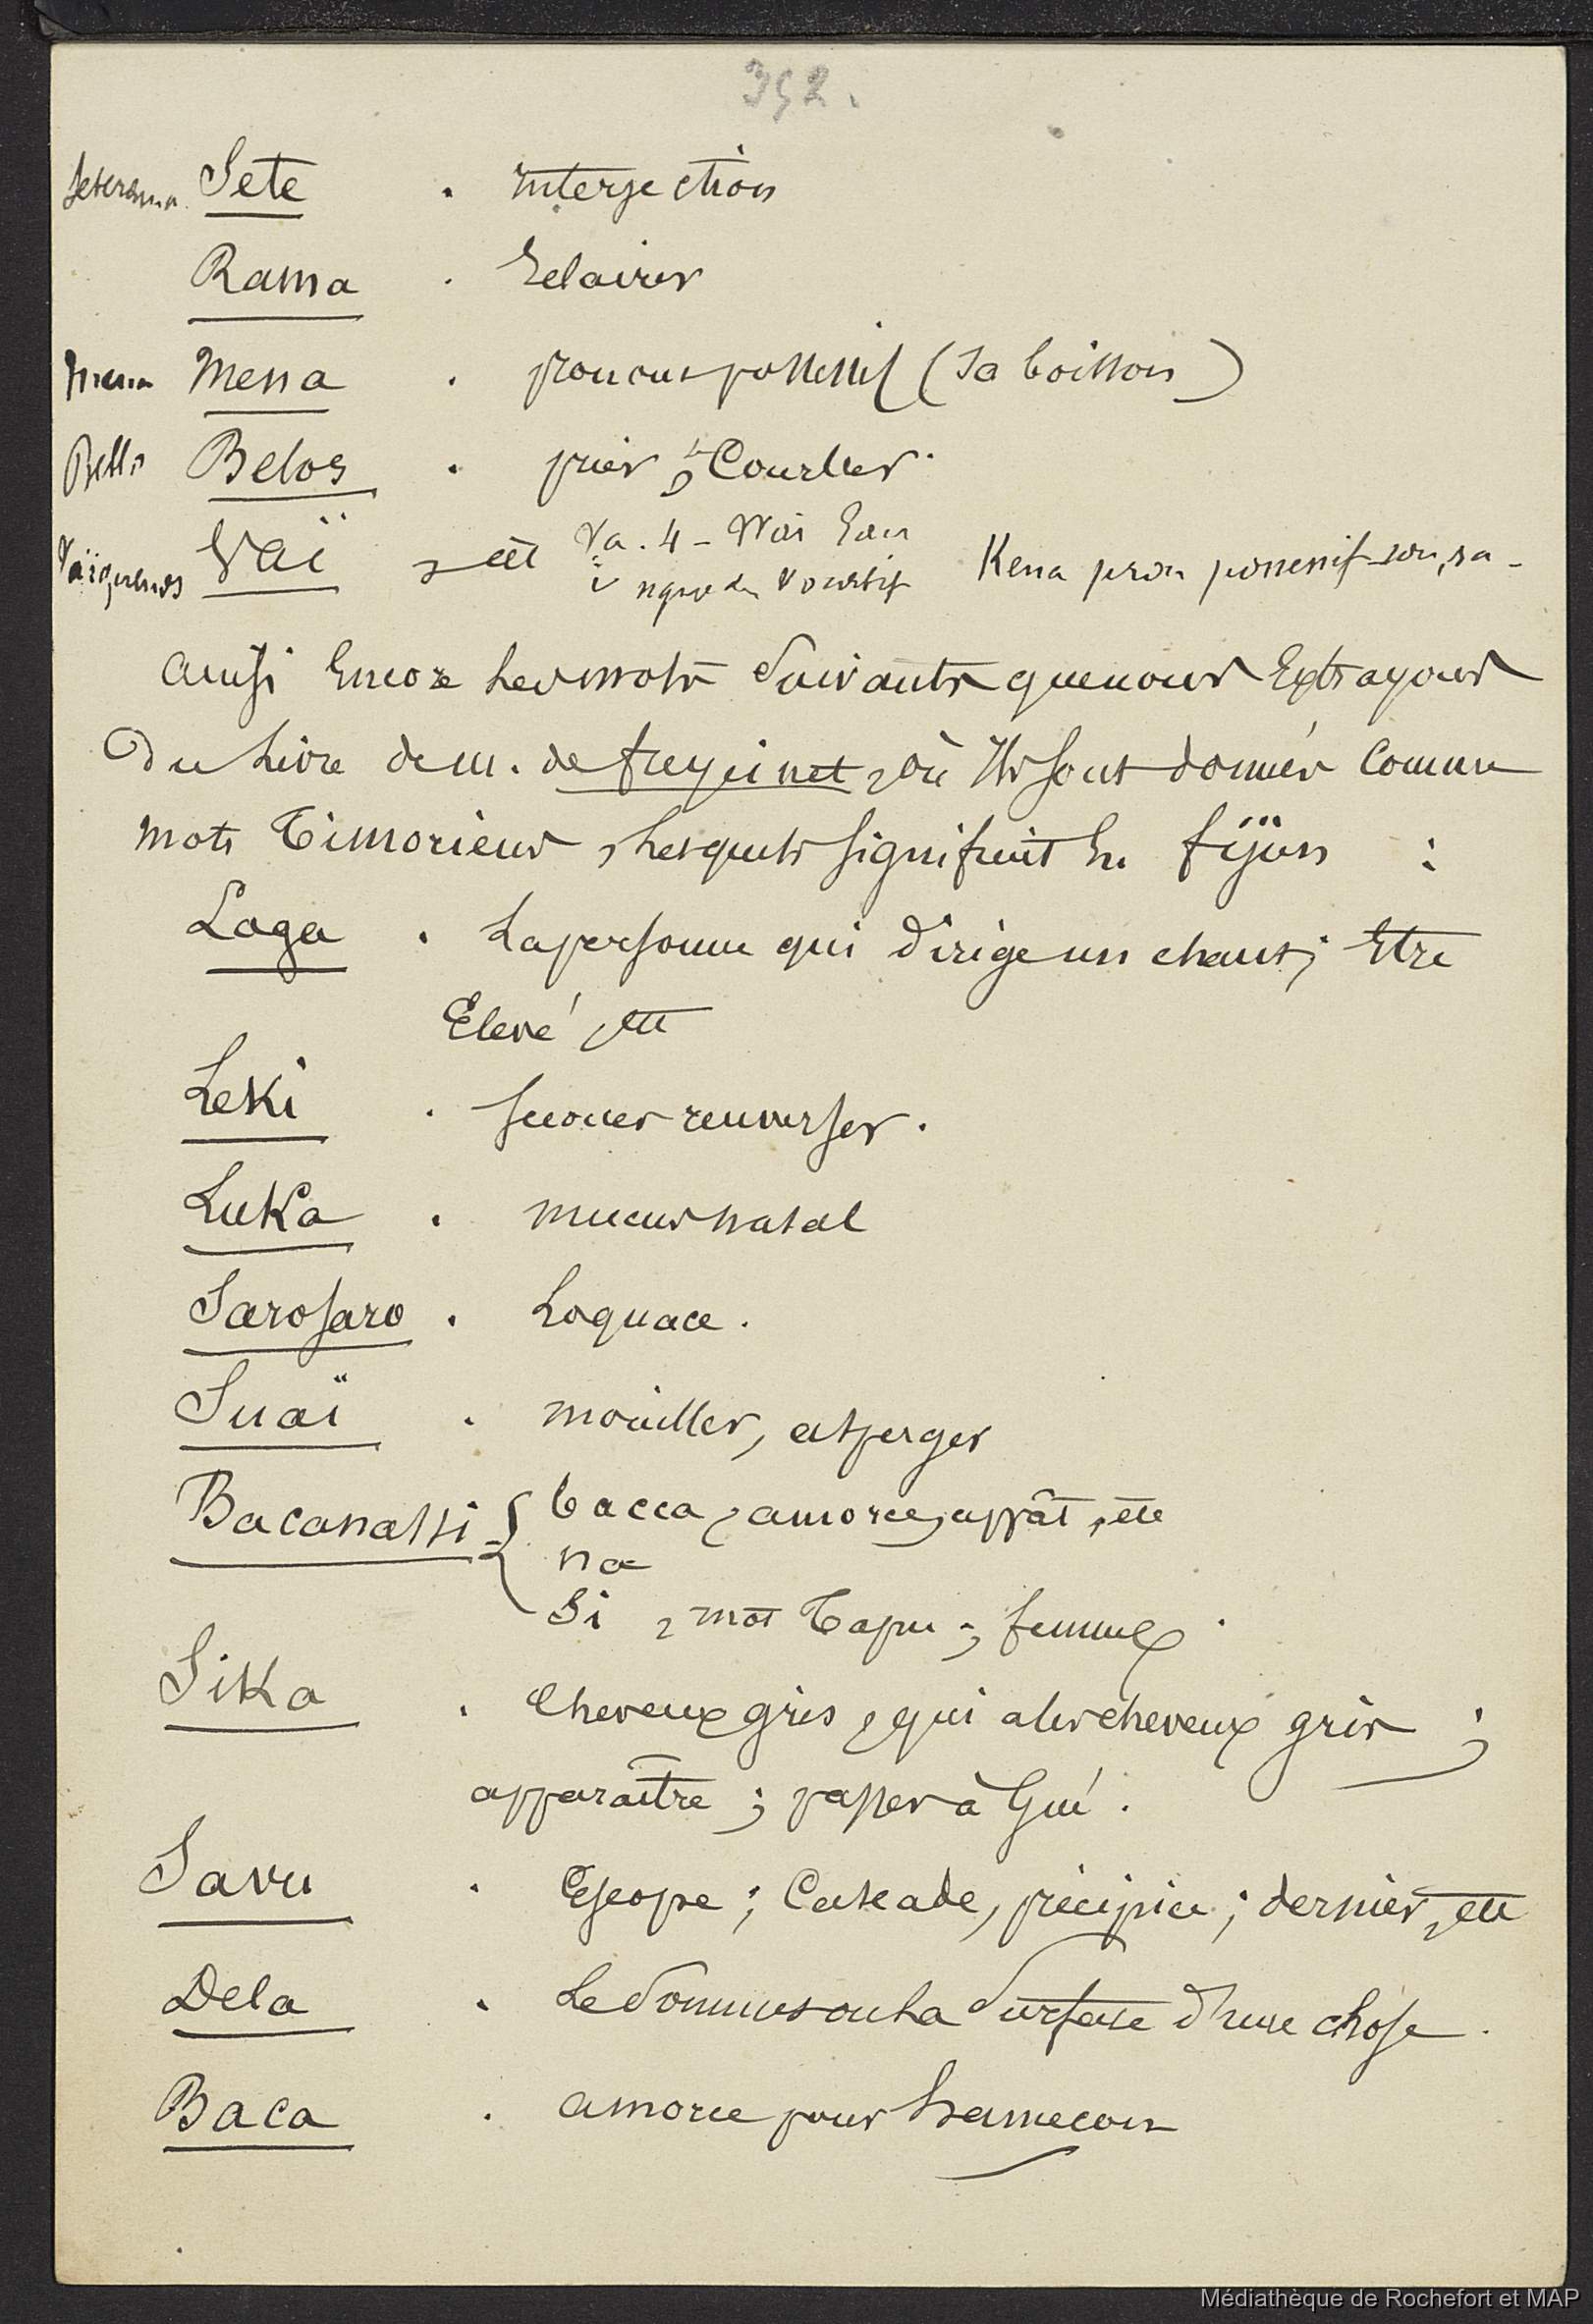 352.
Seterama Sete . interjection
Rama . Eclairer
Mena Mena . pronom possessif (sa boisson)
Bello Belos . prier, se Courber.
Vaïquenos Vaï , etc Va . 4 - Waï Eau
i signe du vocatif Kena pron possessif son, sa -
ainsi Encore les mots Suivants que nous Extrayons
Du Livre de M. de freycinet, où Ils sont donnés Comme
mots Timoriens, lesquels signifient En fijien :
Laga . La personne qui Dirige un chant ; Etre
Elevé, etc
Leki . secouer renverser.
Luka . mucus nasal
Sarosaro . Loquace.
Suaï . mouiller, asperger
Bacanassi = { bacca, amorce, appât, etc
na
Si , mot Tapu -, femmes .
Sika . Cheveux gris, qui a les cheveux gris ;
apparaître ; passer à Gué.
Savu . Escope ; Cascade, précipice ; dernier, etc
Dela . Le Sommet ou La Surface d'une chose .
Baca . amorce pour hamecon
Médiathèque de Rochefort et MAP